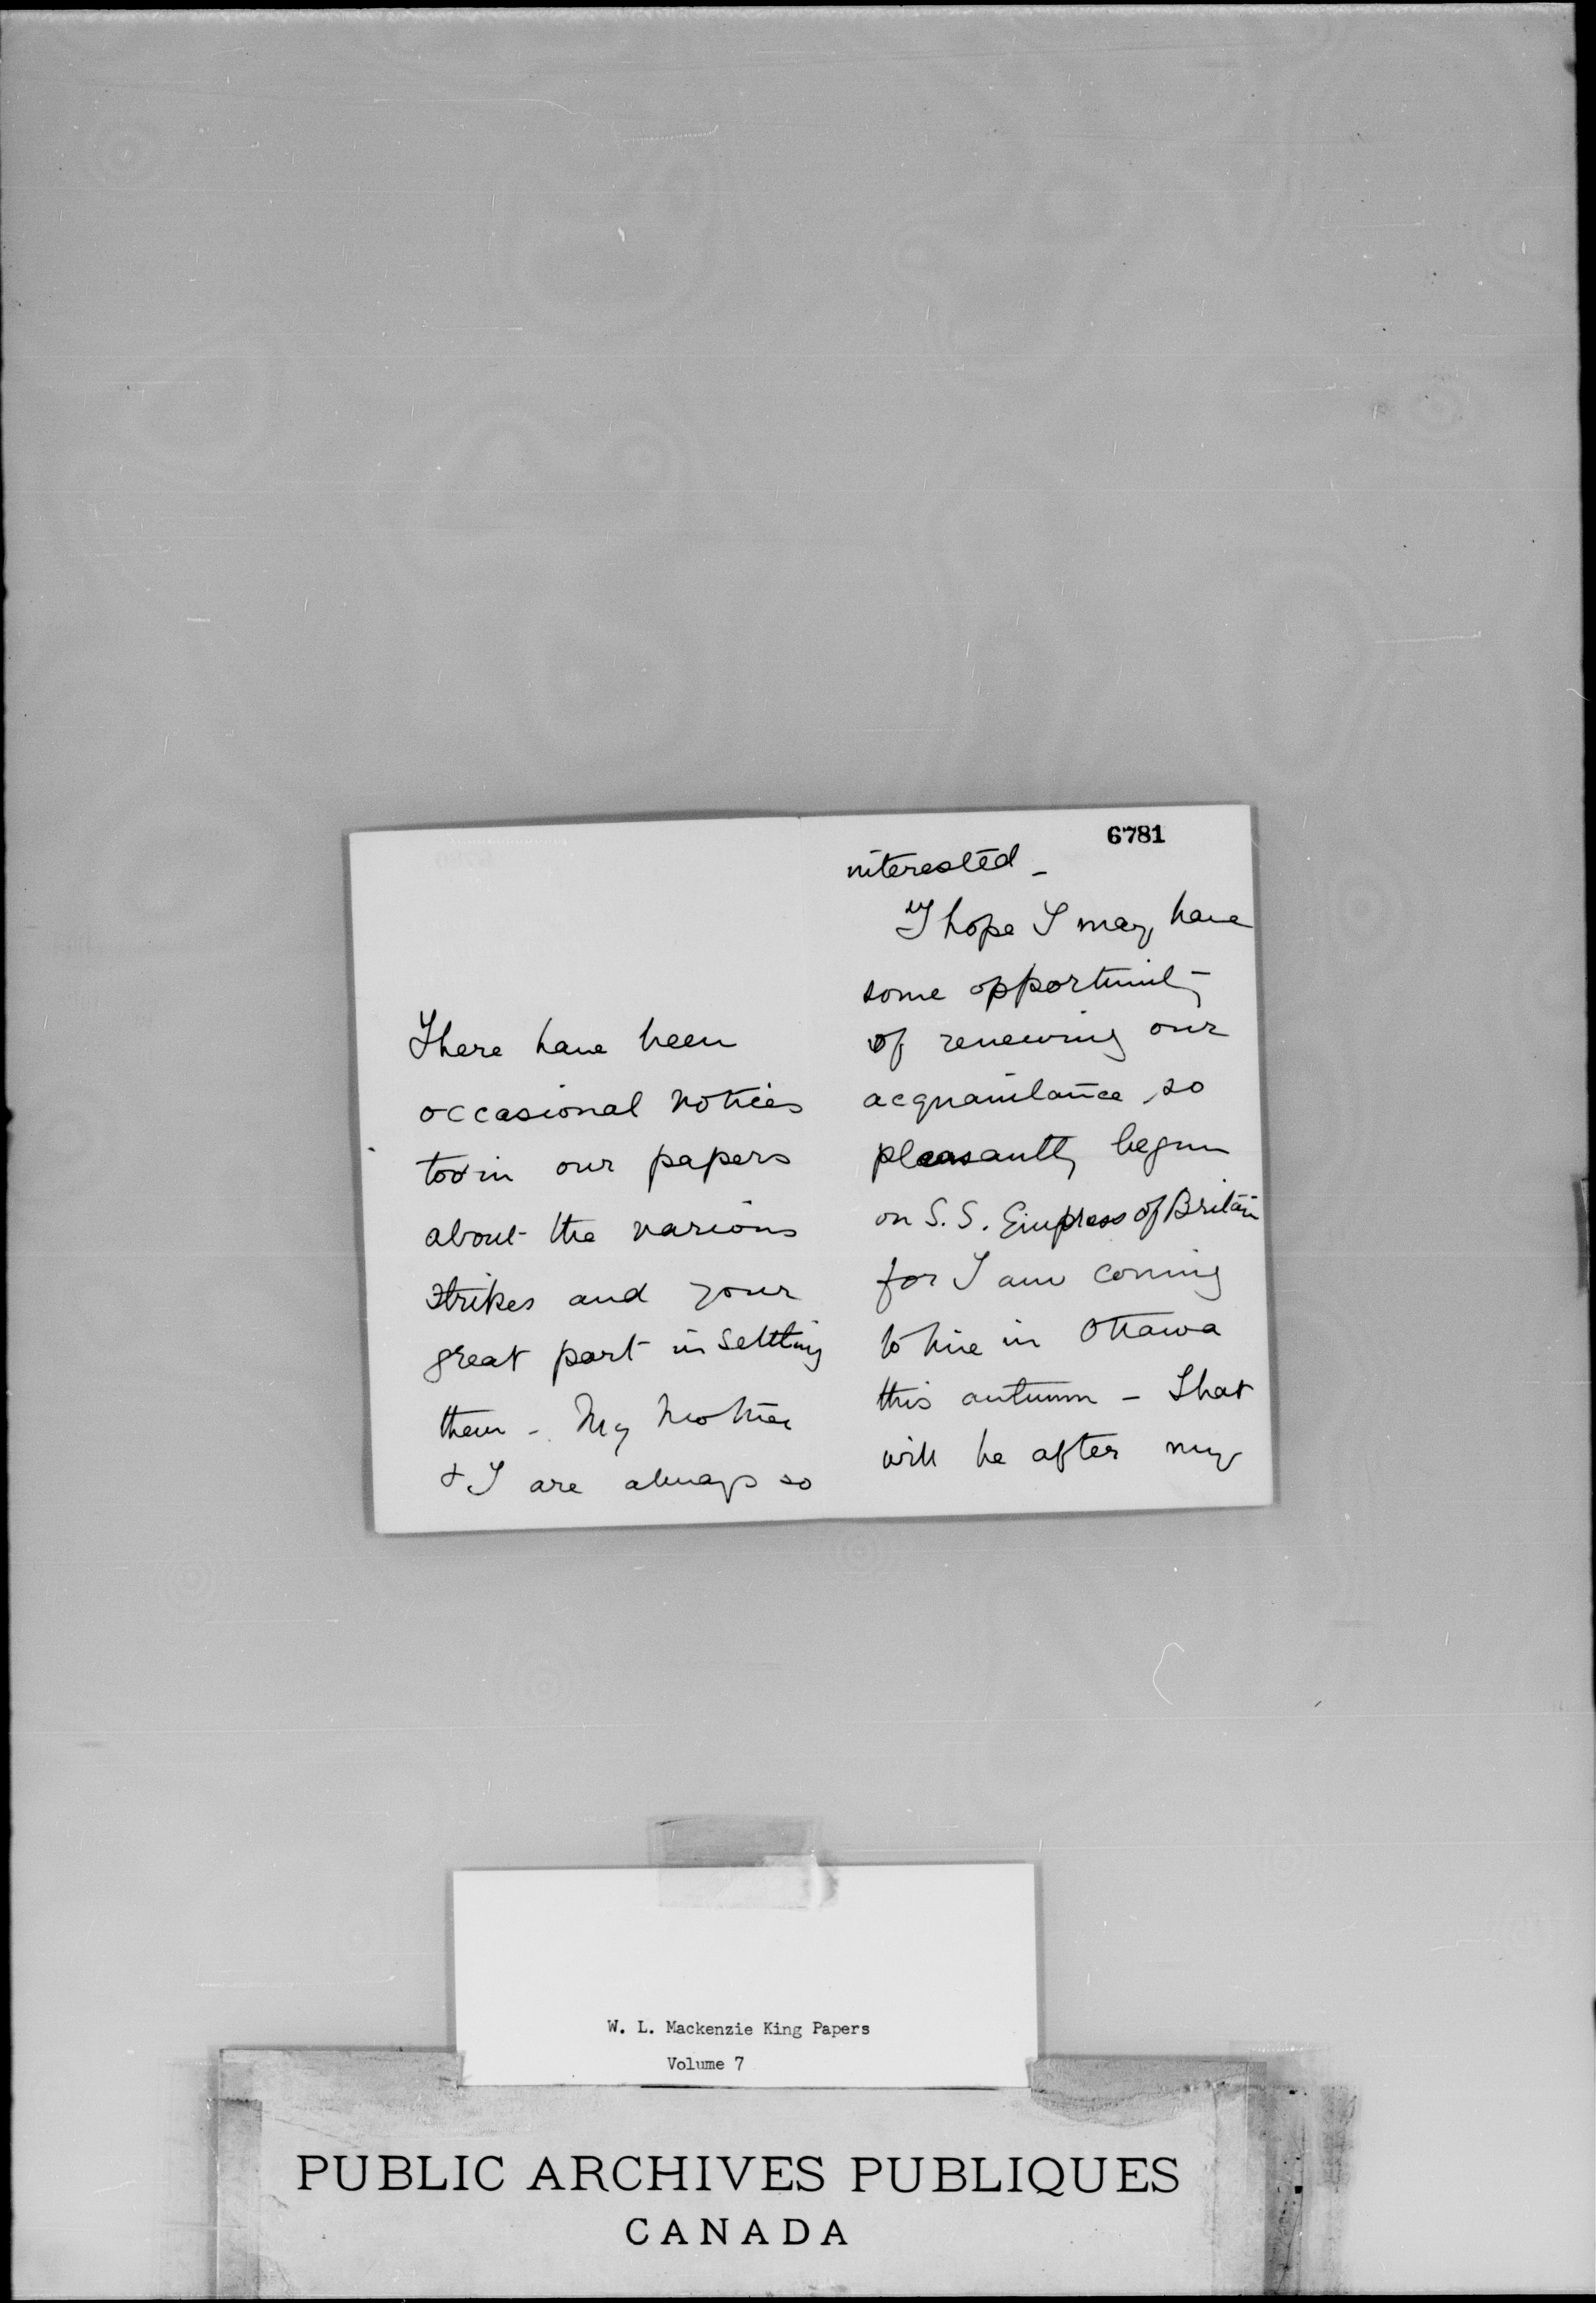 There have been
occasional notices
too in our papers
about the various
strikes and your
great part in settling
them - My Mother
& I are always so
6781
interested -
I hope I may have
some opportunity
of renewing our
acquaintance, so
pleasantly begun
on S.S. Empress of Britain
for I am coming
to live in Ottawa
this autumn - That
will be after my
W. L. Mackenzie King Papers
Volume 7
PUBLIC ARCHIVES PUBLIQUES
CANADA